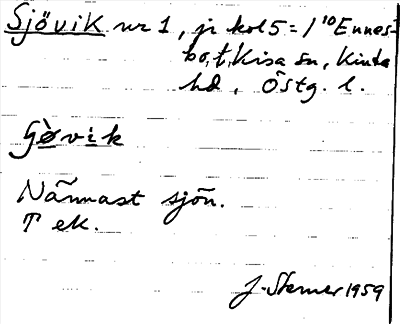 Sjövik nr 1, jr kol 5 = 1/10 Ennes-
bo, t. Kisa sn, Kinda
hd, Östg. l.
Närmast sjön.
T ek.
J. Sterner 1959